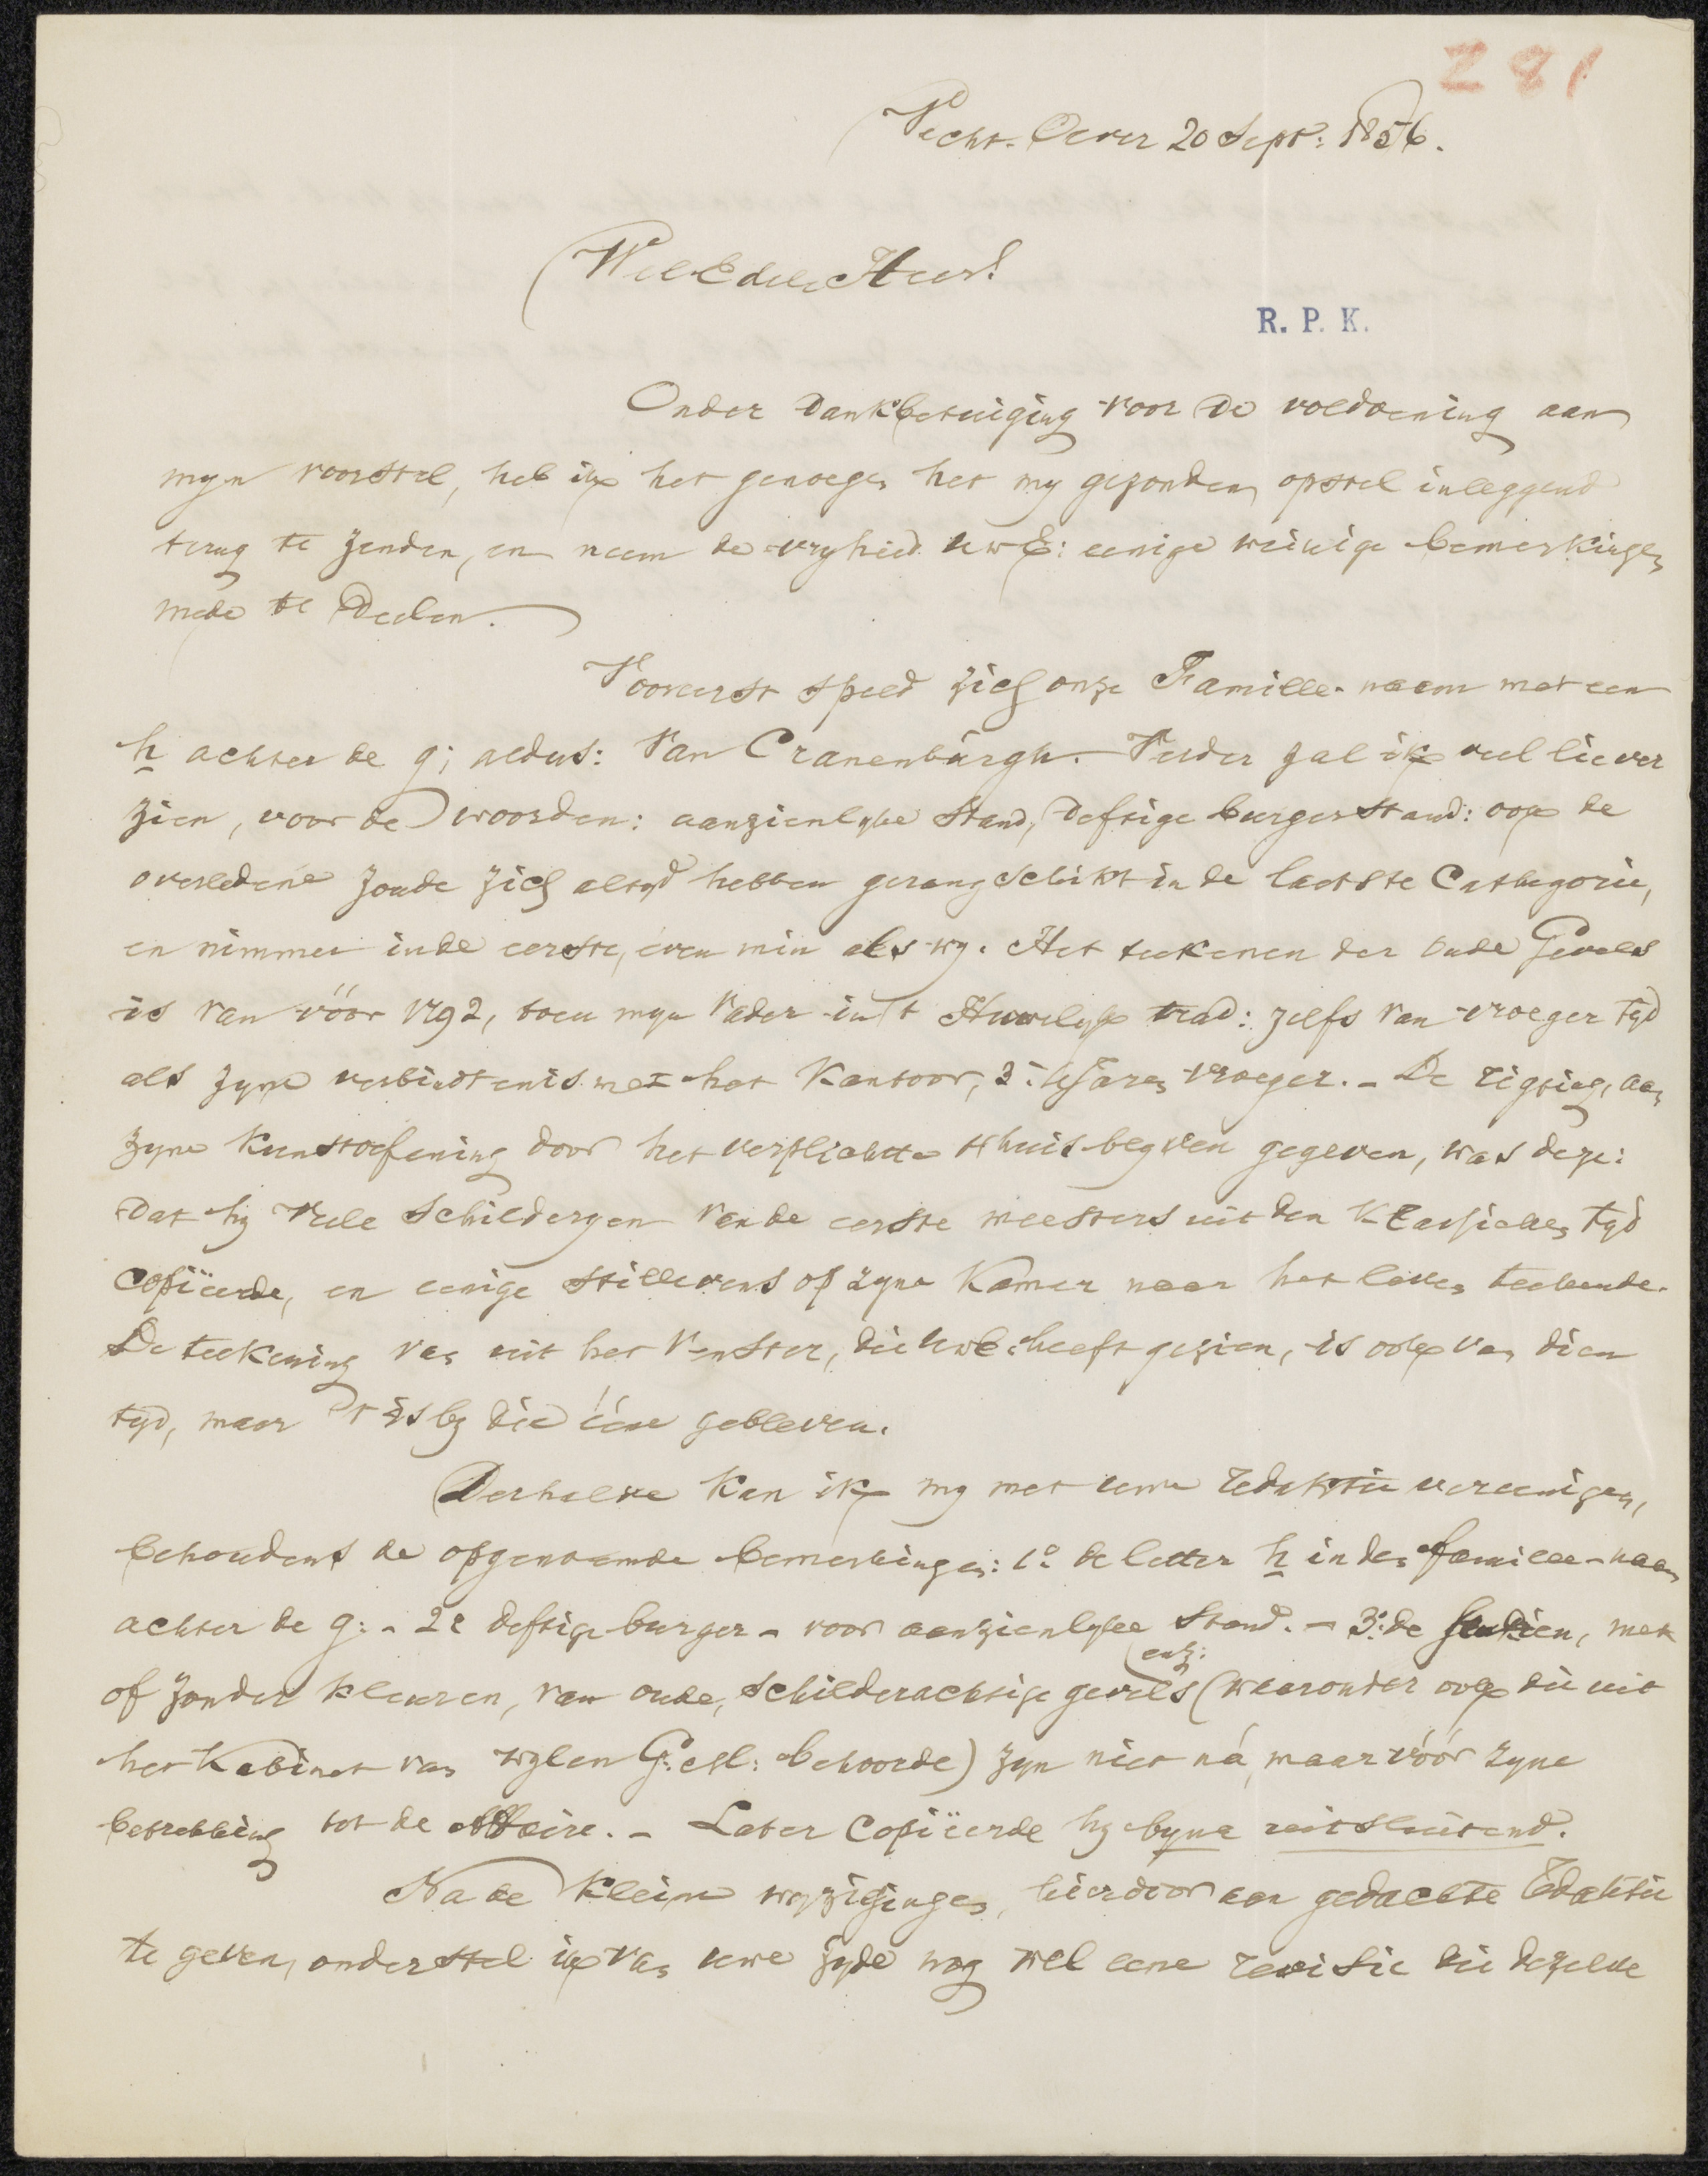 281
Vecht-Oever 20 Sept: 1856.
WelEdele Heer!
R. P. K.
Onder dankbetuiging voor de voldoening aan
myn voorstel, heb ik het genoegen het my gezonden opstel inleggend
terug te zenden, en neem de vryheid UwE: eenige weinige bemerkingen
mede te deelen.
Vooreerst speld zich onze Famille-naem met een
h achter de g; aldus: Van Cranenburgh. Verder zal ik veel liever
zien, voor de woorden: aanzienlyke stand, deftige burgerstand: ook de
overledene zoude zich altyd hebben gerangschikt in de laatste Cathegorie,
en nimmer in de eerste, even min als wy. Het teekenen der oude Gevels
is van vóór 1792, toen myn Vader in 't Huwelyk trad: zelfs van vroeger tyd
als zyne verbindtenis met het Kantoor, Jaren vroeger. - De rigting, aan
zyne Kunstoefening door het verplichte t'huisblyven gegeven, was deze:
dat hy vele Schilderyen van de eerste meesters uit den Klassieken tyd
copiëerde, en eenige stillevens op zyne Kamer naar het leven teekende.
De teekening van uit het Venster, die UwE: heeft gezien, is ook van dien
tyd, maar 't is by die ééne gebleven.
Derhalve kan ik my met uwe redaktie vereenigen,
behoudens de opgenoemde bemerkingen: 1o de letter h in den famille-naam
achter de g: - 2e deftige burger - voor aanzienlyke Stand. - 3o: de studien, met
of zonder kleuren, van oude, schilderachtige gevels enz: (waaronder ook die uit
het Kabinet van wylen G: behoorde) zyn niet ná, maar vóór zyne
betrekking tot de affaire. - Later copiëerde hy byna uitsluitend.
Na de kleine wyzigingen, hierdoor aan gedachte Redaktie
te geven, onderstel ik van uwe zyde nog wel eene revisie die dezelve